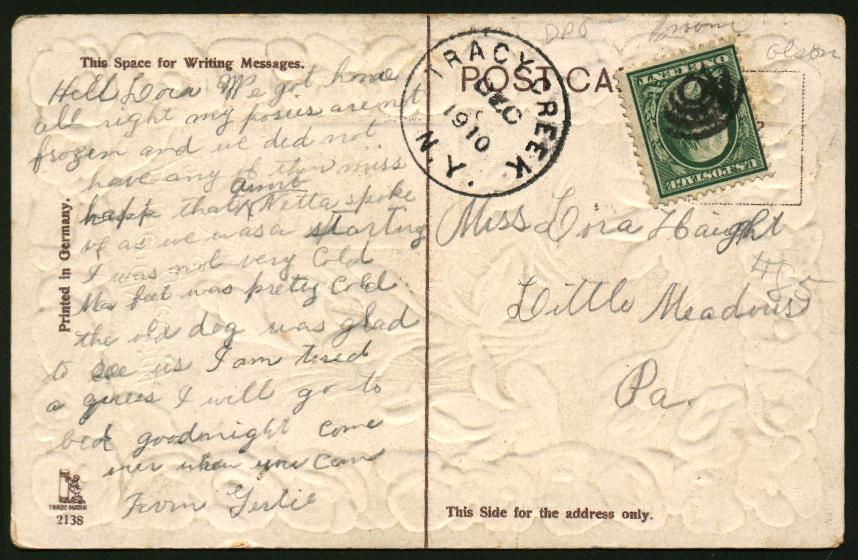 This Space for Writing Messages.
Hell Lora We got home
all right my posies are not
frozen and we did not
have any of miss
that Aunt Netta spoke
of as we was a starting
I was not very Cold
Ma feet was pretty Cold
the old dog was glad
to see us I am tired
a I will go to
bed goodnight Come
over when you can
From Gertie
Printed in Germany.
TRADE MARK
2138
POST CA
TRACY CREEK
N.Y.
DEC
1910
ONE CENT
U.S. POSTAGE
DPO
Broome
Olson
Miss Lora Haight
Little Meadows
Pa.
#85
This Side for the address only.